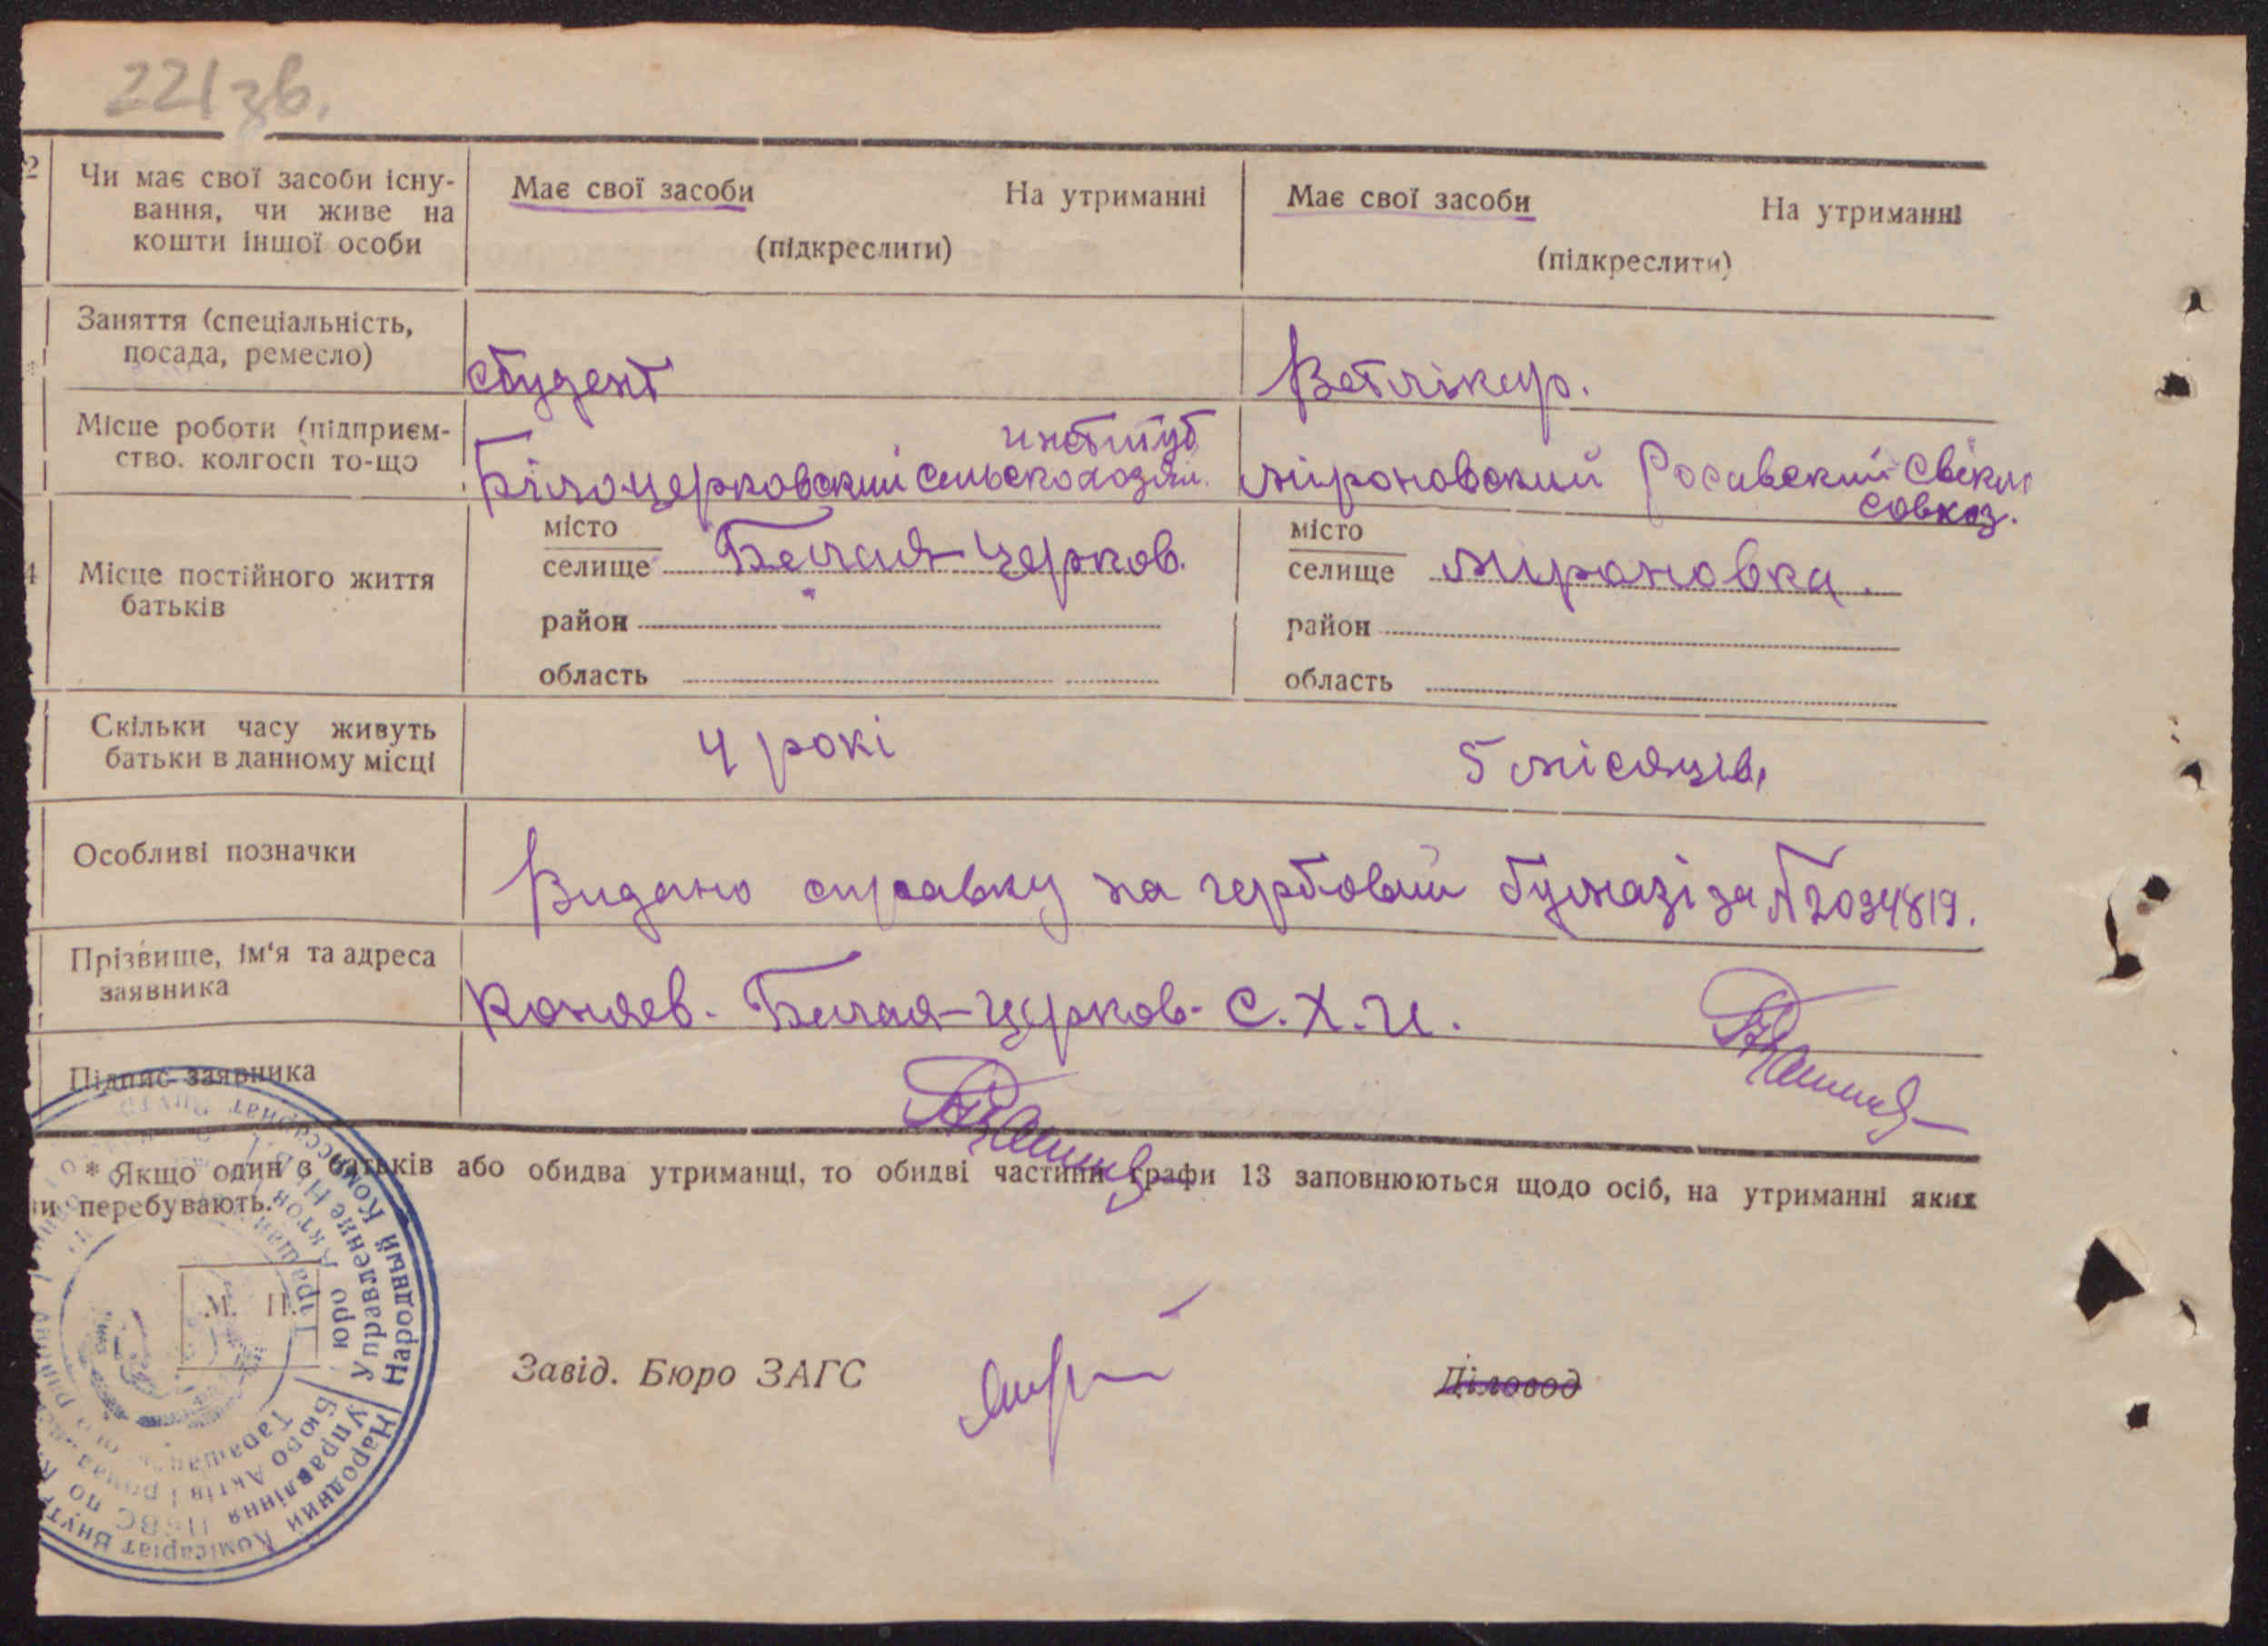 221 зв.
2 Чи має свої засоби існу-
вання, чи живе на
кошти іншої особи
Має свої засоби На утриманні
(підкреслити)
Має свої засоби На утриманні
(підкреслити)
Заняття (спеціальність,
посада, ремесло)
студент
Ветлікар.
Місце роботи (підприєм-
ство. колгосп то-що
институт
Білоцерковский сельскохозяй.
Мироновский Росавский Свекло
совхоз.
4 Місце постійного життя
батьків
місто
селище Белая-Церков.
район
область
місто
селище Мироновка.
район
область
Скільки часу живуть
батьки в данному місці
4 рокі
5 місяців,
Особливі позначки
Видано справку на гербовій бумазі за № 2034819.
Прізвище, ім'я та адреса
заявника
Коняев. Белая-Церков. С.Х.И.
Підпис заявника
* Якщо один з батьків або обидва утриманці, то обидві частини графи 13 заповнюються щодо осіб, на утриманні яких
ни перебувають.
М. П.
Завід. Бюро ЗАГС
Діловод
Народный Комиссариат
Управление
Народний Комісаріат Внутр
Управління
Бюро Актів